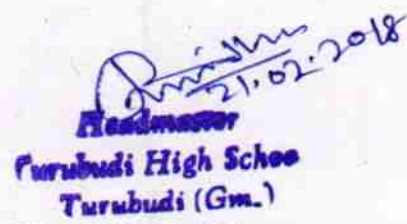 21.02.2018
Headmaster
Purubudi High Schoo
Turubudi (Gm.)